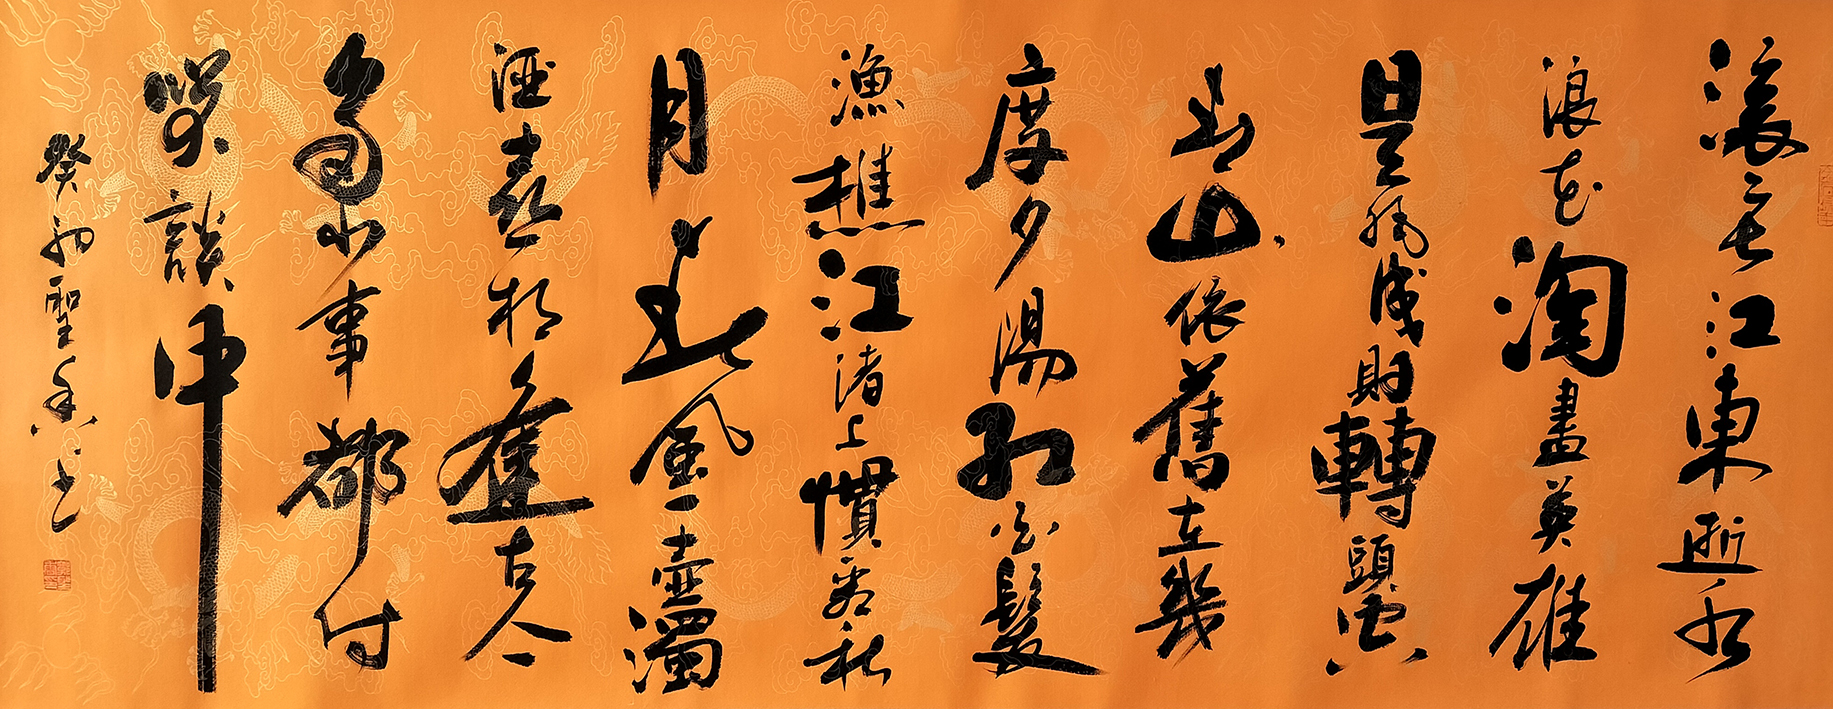 滾滾长江東逝水
浪花淘盡英雄
是非成敗轉頭空
青山依舊在幾
度夕陽紅白髮
漁樵江渚上慣看秋
月春風一壺濁
酒喜相逢古今
多少事都付
笑談中
癸卯聖书